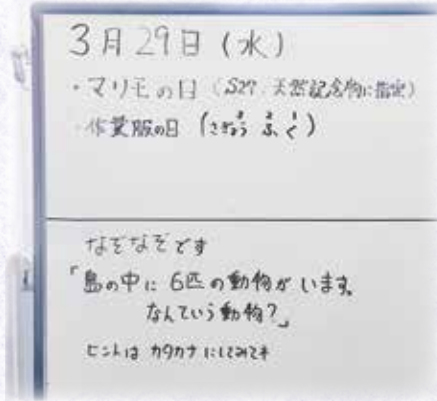 3月29日(水)
・マリモの日(S27.天然記念物に指定)
・作業服の日(さぎょう ふ く)
なぞなぞです
「島の中に 6匹の動物が います。
なんていう動物?」
ヒントは カタカナにしてみてネ